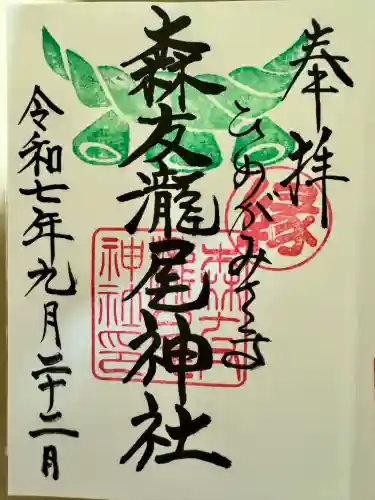 奉拝
ひめがみさま
縁
森友瀧尾神社
令和七年九月二十二月